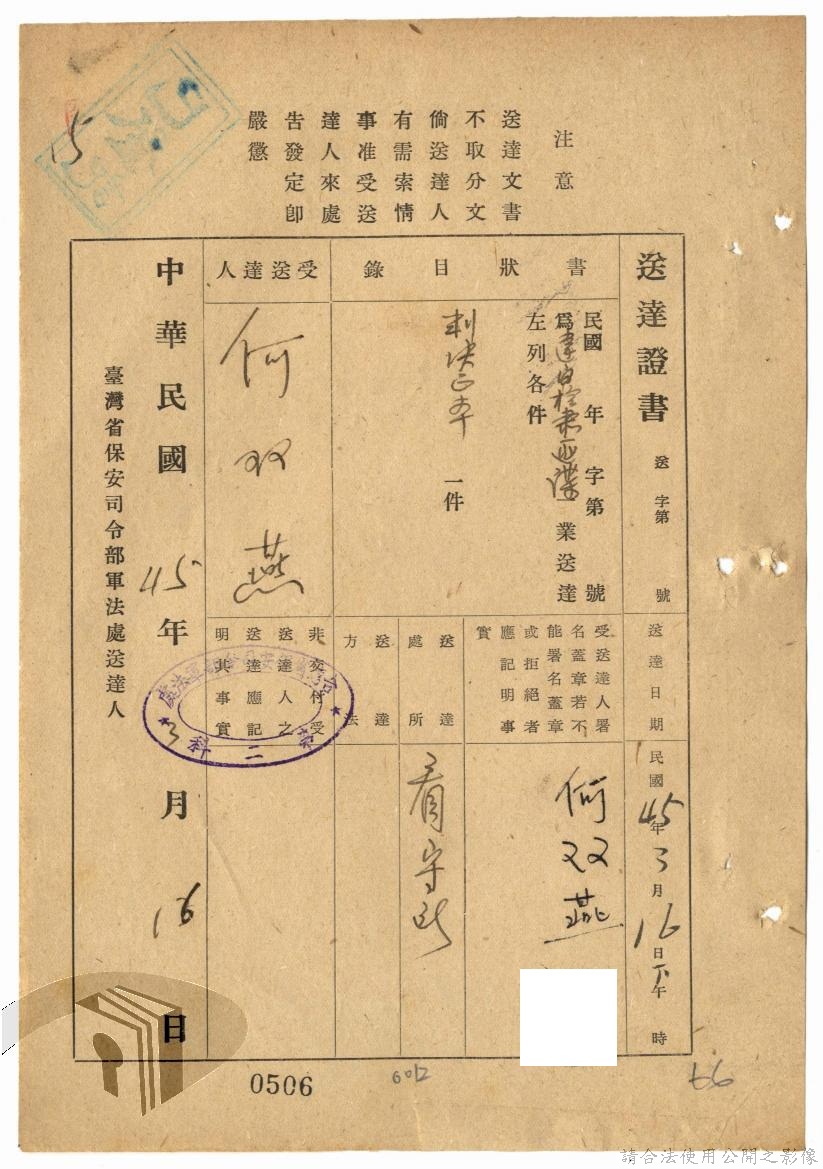 注意
送達文書
不取分文
倘送達人
有需索情
事准受送
達人來處
告發定卽
嚴懲
15
送達證書 送 字第 號
送達日期 民國45年3月16日下午 時
書狀目錄
民國 年 字第 號
爲 業送達
左列各件
判決正本 一件
受送達人署
名蓋章若不
能署名蓋章
或拒絕者
應記明事
實
何双燕
送達處所
看守所
送達方法
受送達人
何双燕
非交付受
送達人之
送達應記
明其事實
中華民國45年3月16日
臺灣省保安司令部軍法處送達人
第二科
0506
6012
66
請合法使用公開之影像